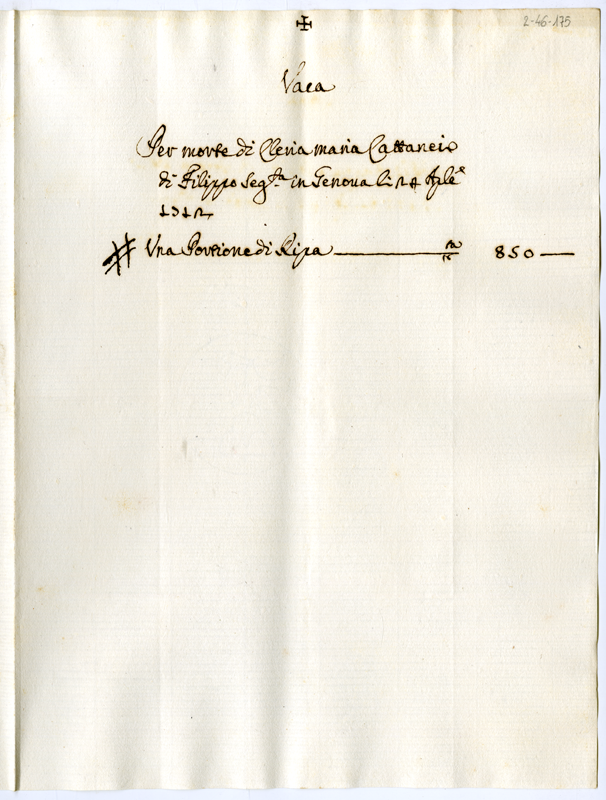 ✠
2-46-175
Vaca
Per morte di Cleria maria Cattaneio
di Filippo Seg.ta in Genova li 24 Aple
1712
Una Portione di Ripa 850